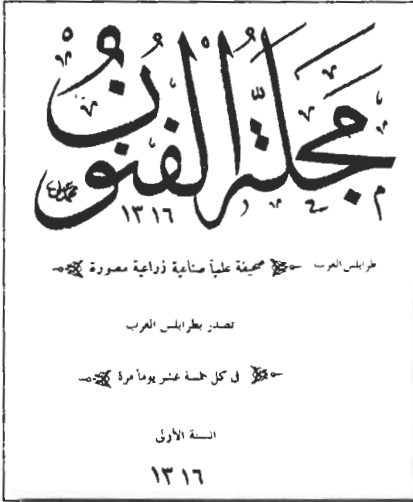 مجلة الفنون
١٣١٦
طرابلس الغرب صحيفة علمياً صناعية زراعية مصورة
تصدر بطرابلس الغرب
في كل خمسة عشر يوماً مرة
السنة الأولى
١٣١٦